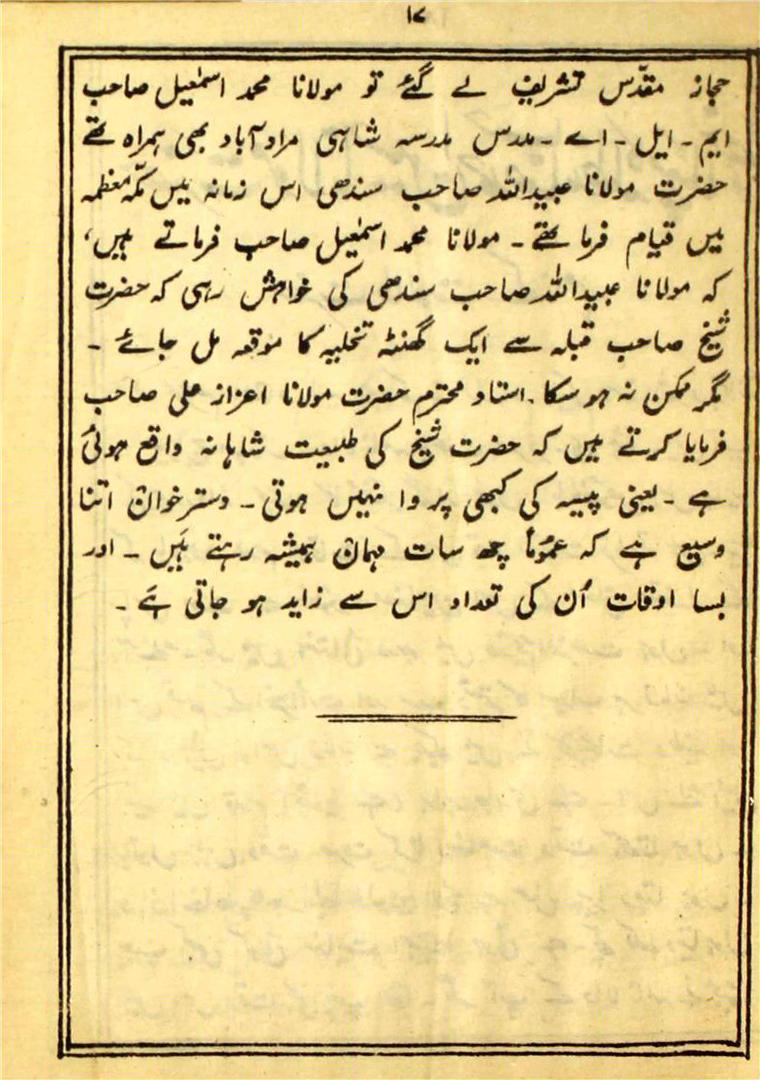 ۱۷
حجاز مقدّس تشریف لے گئے تو مولانا محمد اسمٰعیل صاحب
ایم - ایل - اے - مدرس مدرسہ شاہی مرادآباد بھی ہمراہ تھے
حضرت مولانا عبیداللہ صاحب سندھی اس زمانہ میں مکّہ معظمہ
میں قیام فرما تھے - مولانا محمد اسمٰعیل صاحب فرماتے ہیں،
کہ مولانا عبیداللہ صاحب سندھی کی خواہش رہی کہ حضرت
شیخ صاحب قبلہ سے ایک گھنٹہ تخلیہ کا موقعہ مل جائے -
مگر ممکن نہ ہو سکا. استاد محترم حضرت مولانا اعزاز علی صاحب
فرمایا کرتے ہیں کہ حضرت شیخ کی طبیعت شاہانہ واقع ہوئی
ہے - یعنی پیسہ کی کبھی پروا نہیں ہوتی - دسترخوان اتنا
وسیع ہے کہ عموماً چھ سات مہمان ہمیشہ رہتے ہَیں - اور
بسا اوقات اُن کی تعداد اس سے زاید ہو جاتی ہَے -